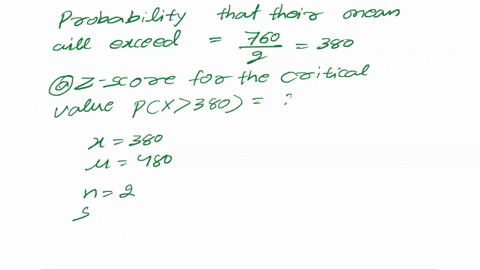 Probability that their mean
will exceed = 760/2 = 380
ⓐ Z-score for the critical
value P(X>380) = ?
x = 380
μ = 480
n = 2
S